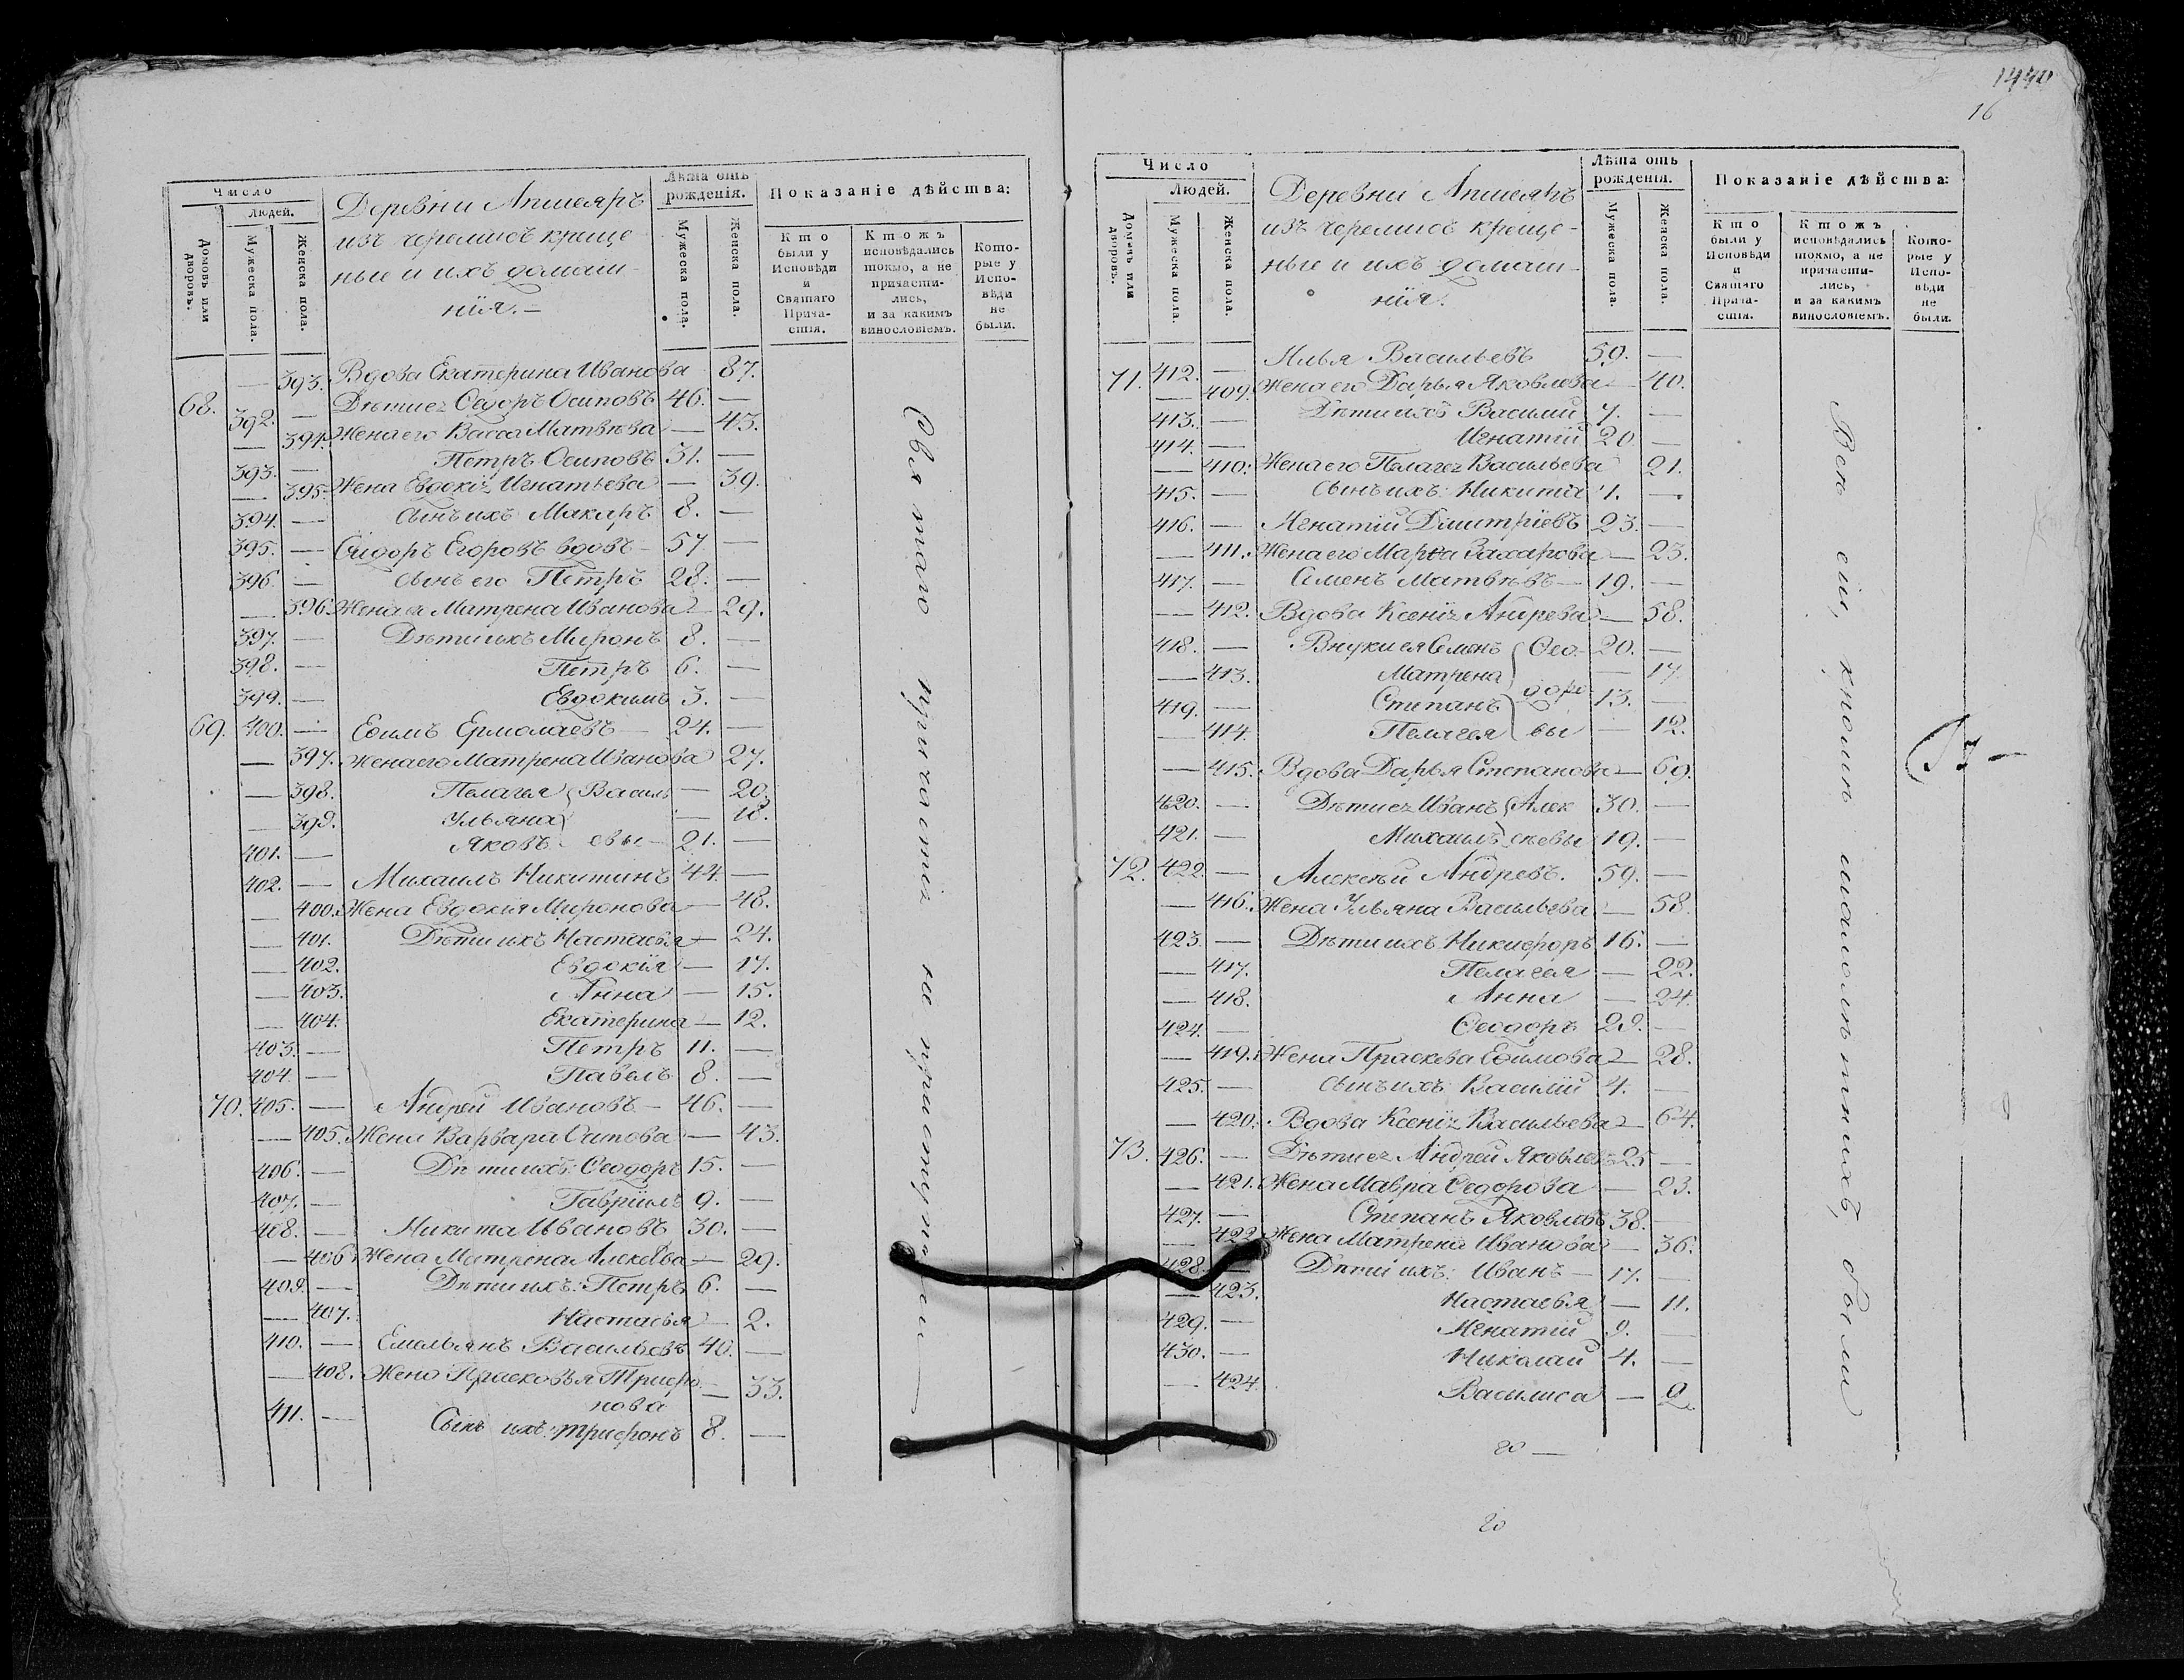 1440
16
Число
Людей.
Домовъ или дворовъ.
Мужеска пола.
Женска пола.
Деревни Апшеяръ
изъ черемисъ креще-
ные и ихъ домаш-
нія. –
Лѣта отъ рожденія.
Мужеска пола.
Женска пола.
Показаніе дѣйства:
Кто были у Исповѣди и Святаго Прича-стія.
Ктожъ исповѣдались токмо, а не причасти-лись, и за какимъ винословіемъ.
Кото-рые у Испо-вѣди не были.
— 393. Вдова Екатерина Иванова 87.
68. 392. — Дѣти ея Ѳедоръ Осиповъ 46. —
— 394. Жена его Васса Матвѣева — 43.
393. — Петръ Осиповъ 31. —
— 395. Жена Евдокія Игнатьева — 39.
394. — Сынъ ихъ Макаръ 8. —
395. — Сидоръ Егоровъ вдовъ 57 —
396. — Сынъ его Петръ 28. —
— 396. Жена Матрена Иванова — 29.
397. — Дѣти ихъ Миронъ 8. —
398. — Петръ 6. —
399. — Евдокимъ 3. —
69. 400. — Ефимъ Ермолаевъ 24. —
— 397. Жена его Матрена Иванова 27.
— 398. Пелагея Василь — 20.
— 399. Ульяна — 18.
401. — Яковъ евы 21. —
402. — Михаилъ Никитинъ 44. —
— 400. Жена Евдокія Миронова — 48.
— 401. Дѣти ихъ Настасья — 24.
— 402. Евдокія — 17.
— 403. Анна — 15.
— 404. Екатерина — 12.
403. — Петръ 11. —
404. — Павелъ 8. —
70. 405. — Андрей Ивановъ 46. —
— 405. Жена Варвара Осипова — 43.
406. — Дѣти ихъ: Ѳеодоръ 15. —
407. — Гавріилъ 9. —
408. — Никита Ивановъ 30. —
— 406. Жена Матрена Алексѣева — 29.
409. — Дѣти ихъ: Петръ 6. —
— 407. Настасья — 2.
410. — Емельянъ Васильевъ 40. —
— 408. Жена Прасковья Трифо — 33.
нова
411. — Сынъ ихъ: Трифонъ 8. —
Святаго причастія не пріступили
Число
Людей.
Домовъ или дворовъ.
Мужеска пола.
Женска пола.
Деревни Апшеяръ
изъ черемисъ креще-
ные и ихъ домаш-
нія.
Лѣта отъ рожденія.
Мужеска пола.
Женска пола.
Показаніе дѣйства:
Кто были у Исповѣди и Святаго Прича-стія.
Ктожъ исповѣдались токмо, а не причасти-лись, и за какимъ винословіемъ.
Кото-рые у Испо-вѣди не были.
71. 412. — Илья Васильевъ 59. —
— 409. Жена его Дарья Яковлева — 40.
413. — Дѣти ихъ Василій 7. —
414. — Игнатій 20. —
— 410. Жена его Пелагея Васильева 21.
415. — Сынъ ихъ: Никита 1. —
416. — Игнатій Дмитріевъ 23. —
— 411. Жена его Марѳа Захарова — 23.
417. — Семенъ Матвѣевъ — 19. —
— 412. Вдова Ксенія Андрева — 58.
418. — Внуки ея Семенъ Ѳео- 20. —
— 413. Матрена — 17
419. — Степанъ доро 13. —
— 414. Пелагея вы — 12.
— 415. Вдова Дарья Степанова — 69.
420. — Дѣти ея Иванъ Алек 30. —
421. — Михаилъ сѣевы 19. —
72. 422. — Алексѣй Андревъ. 59. —
— 416. Жена Ульяна Васильева — 58.
423. — Дѣти ихъ Никифоръ 16. —
— 417. Пелагея — 22.
— 418. Анна — 24.
424. — Ѳеодоръ 29. —
— 419. Жена Праскева Ефимова — 28.
425. — Сынъ ихъ: Василій 4. —
— 420. Вдова Ксенія Васильева — 64.
73. 426. — Дѣти ея Андрей Яковлевъ 25 —
— 421. Жена Мавра Ѳедорова — 23.
427. — Степанъ Яковлевъ 38. —
— 422. Жена Матрена Иванова — 36.
428. — Дѣти ихъ: Иванъ — 17. —
— 423. Настасья — 11.
429. — Игнатій 9. —
430. — Николай 4. —
— 424. Василиса — 2.
Всѣ сіи, кромѣ малолѣтнихъ, были
20 —
20